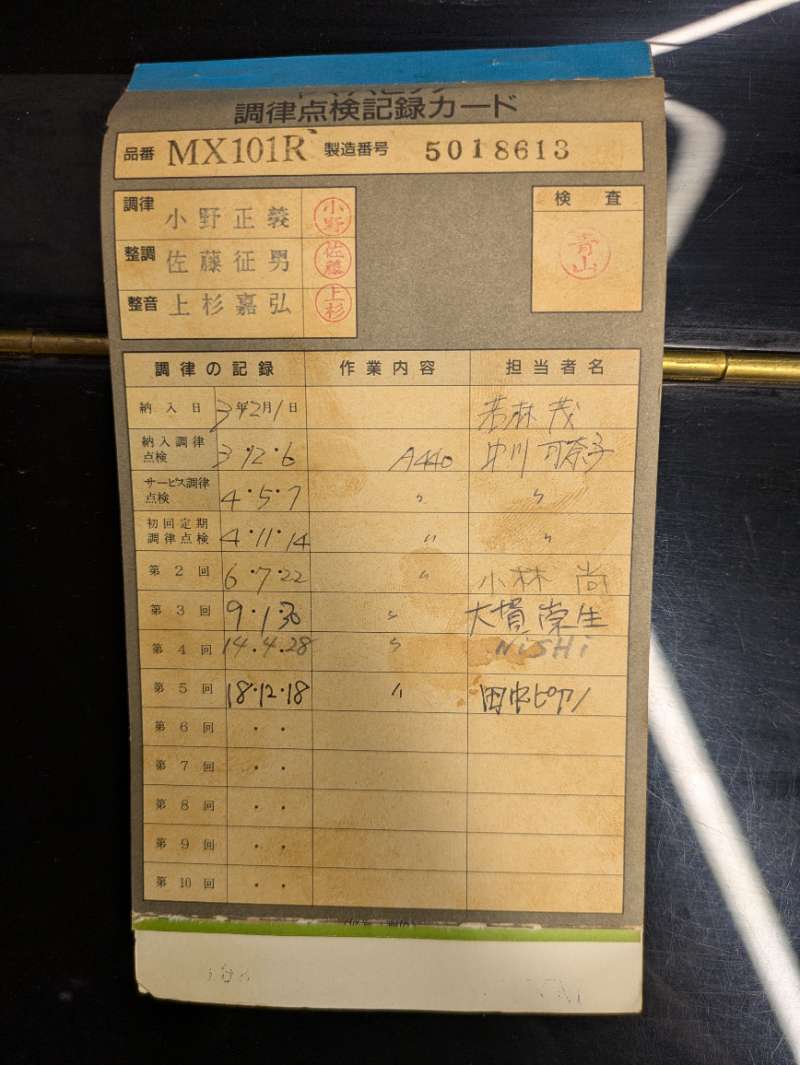 調律点検記録カード
品番 MX101R 製造番号 5018613
調律 小野正義 小野
整調 佐藤征男 佐藤
整音 上杉嘉弘 上杉
検査
青山
調律の記録 作業内容 担当者名
納入日 3年2月1日 若林茂
納入調律点検 3・2・6 A440 中川可奈子
サービス調律点検 4・5・7 〃 〃
初回定期調律点検 4・11・14 〃 〃
第2回 6・7・22 〃 小林尚
第3回 9・1・30 〃 大貫崇生
第4回 14.4.28 〃 NiSHi
第5回 18・12・18 〃 田中ピアノ
第6回 ・・
第7回 ・・
第8回 ・・
第9回 ・・
第10回 ・・